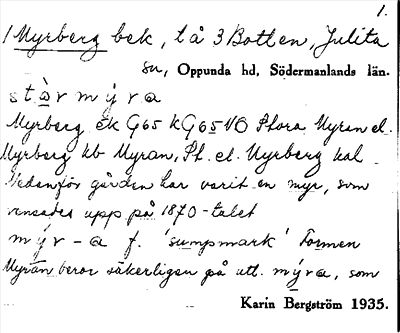 1.
1 Myrberg bek, tå 3 Botten, Julita
sn, Oppunda hd, Södermanlands län.
stàr mýra
Myrberg ek G65 kG65 NB Stora Myran el.
Myrberg kb Myran, St. el. Myrberg kal
Nedanför gården har varit en myr, som
rensades upp på 1870-talet
mýr-a f. 'sumpmark' Formen
Myran beror säkerligen på utt. mýra, som
Karin Bergström 1935.